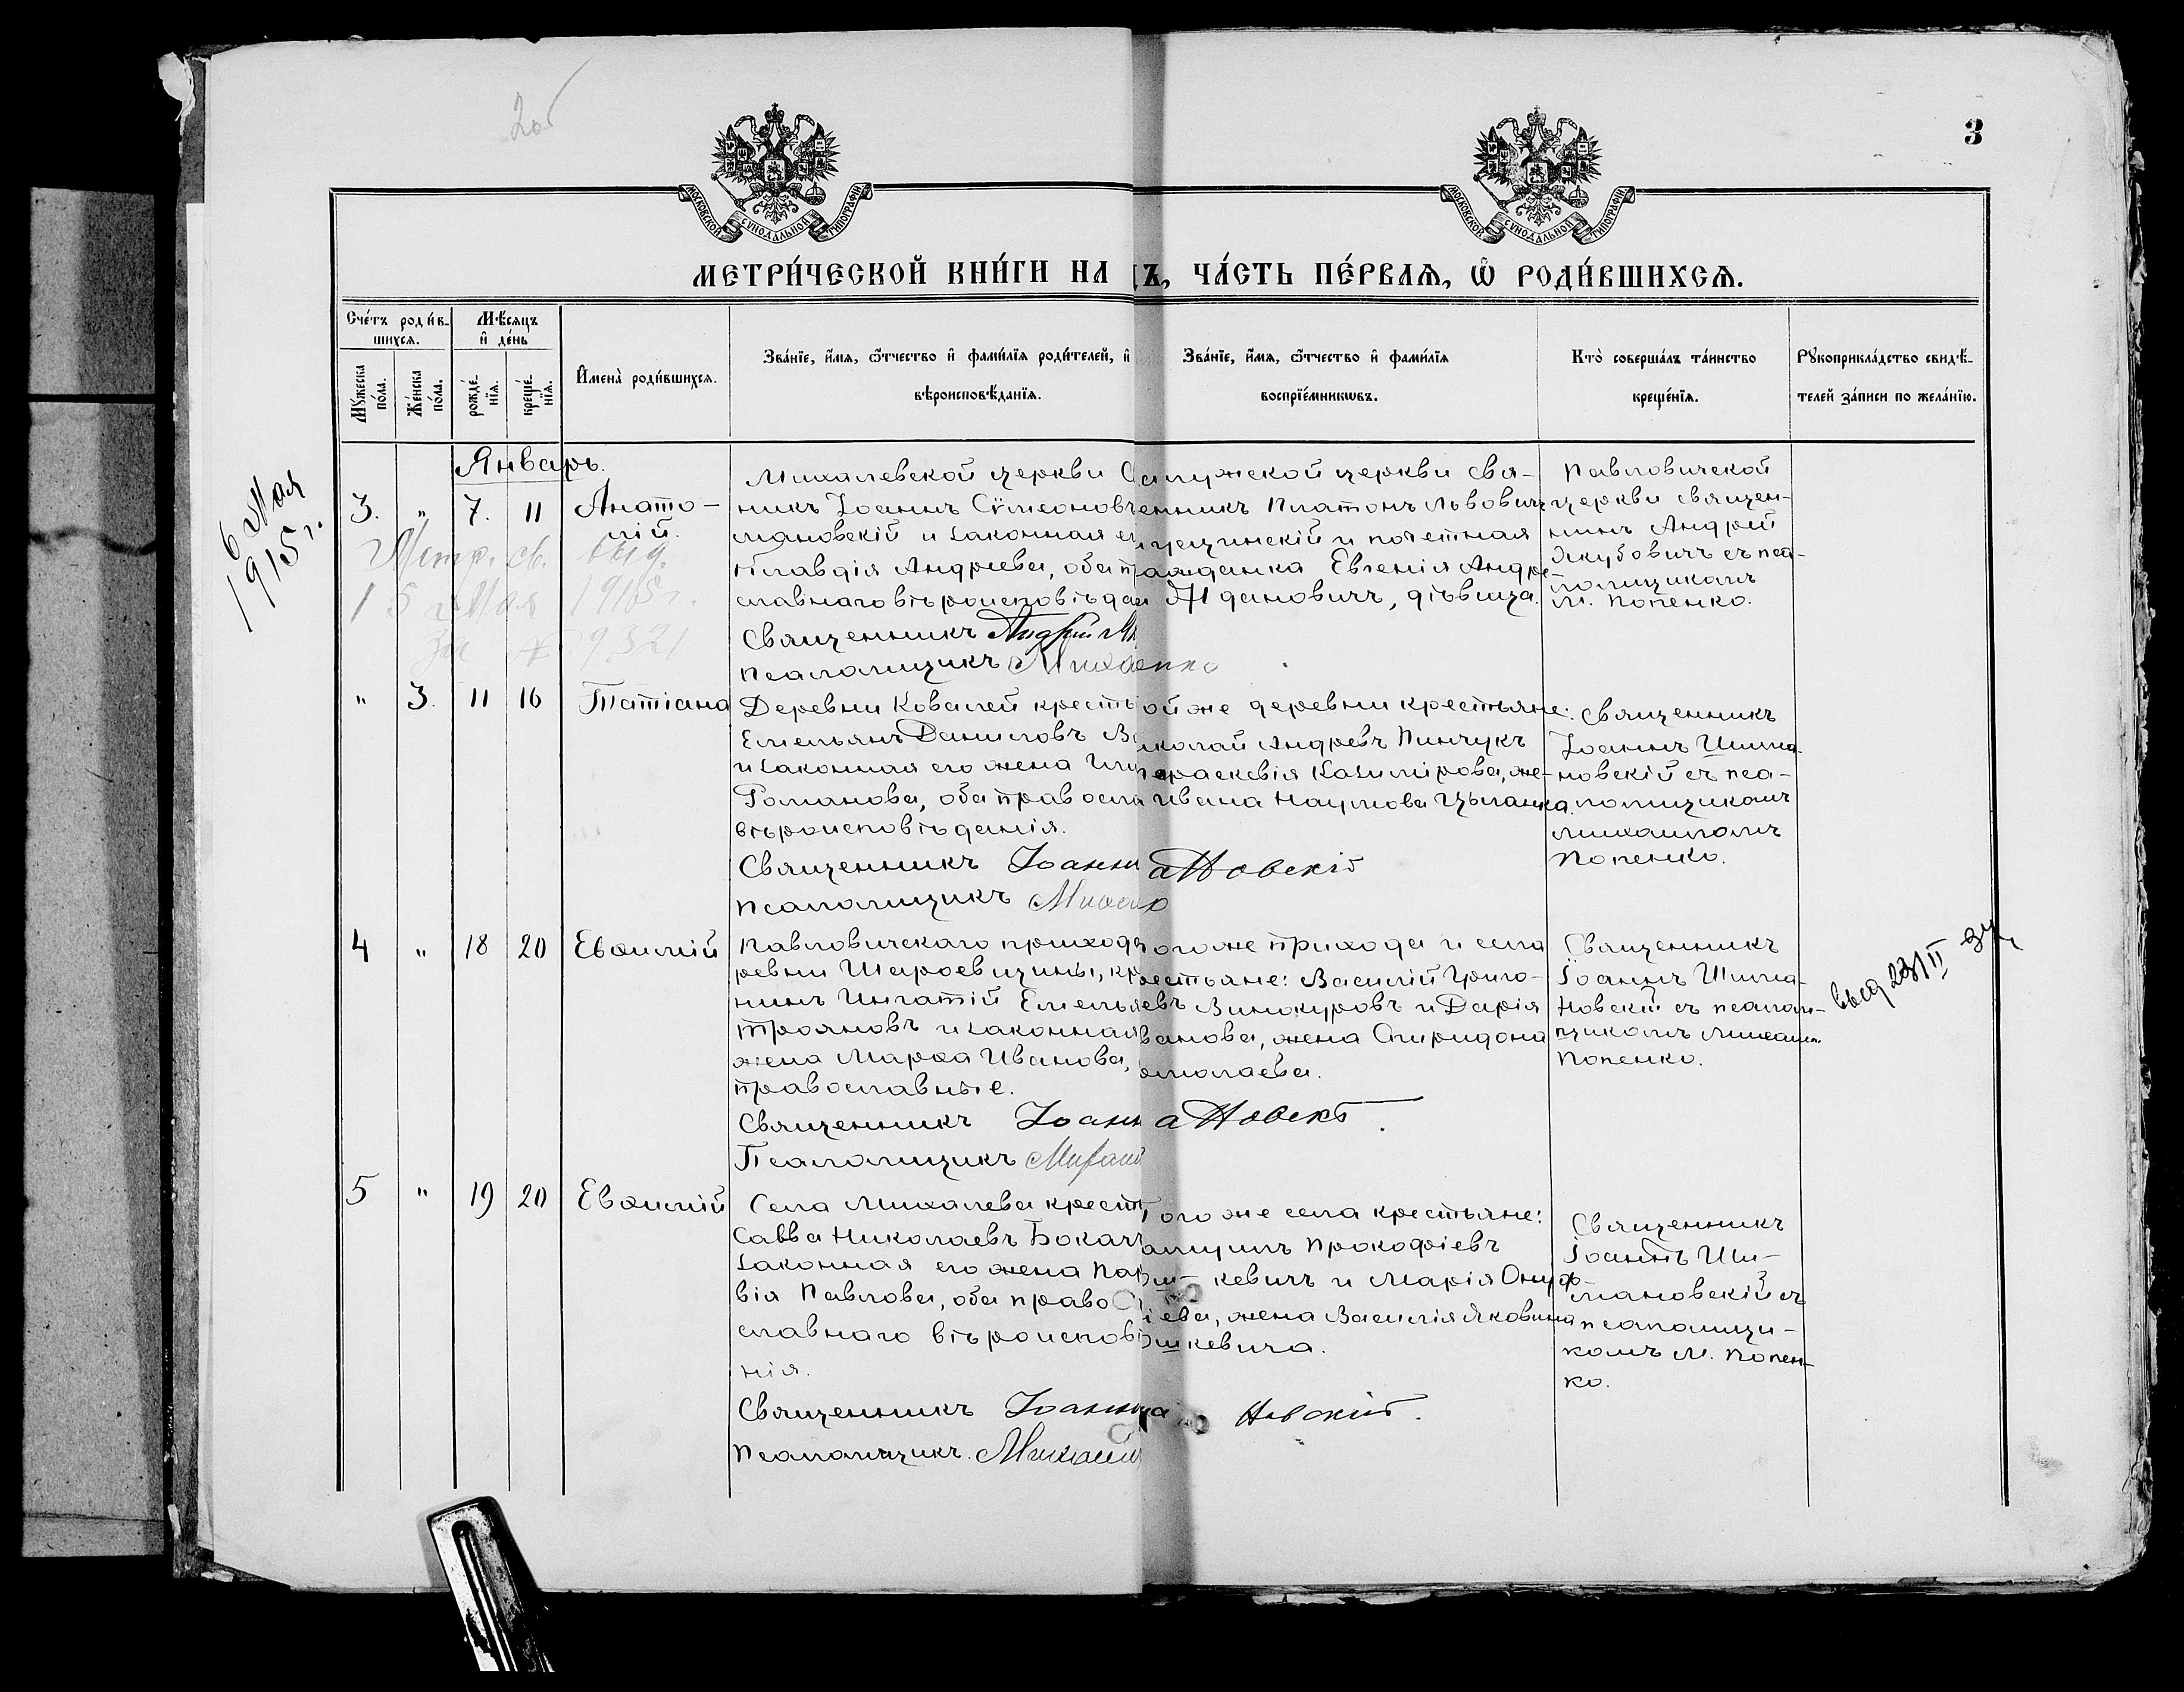 2об
3
МОСКОВСКОЙ СѴНОДАЛЬНОЙ ТИПОГРАФІИ
МОСКОВСКОЙ СѴНОДАЛЬНОЙ ТИПОГРАФІИ
МЕТРИ́ЧЕСКОЙ КНИ́ГИ НА
Ъ, ЧА́СТЬ ПЕ́РВАѦ, Ѽ РОДИ́ВШИХСѦ.
Сче́тъ роди́в-
шихсѧ.
Му́жеска по́ла.
Же́нска по́ла.
Мѣ́сяцъ
и҆ де́нь
рожде́-нїѧ.
креще́-нїѧ.
И҆мена̀ роди́вшихсѧ.
Зва́нїе, и҆́мѧ, ѻ҆́тчество и҆ фами́лїѧ роди́телей, и҆
вѣроисповѣ́данїѧ.
Зва́нїе, и҆́мѧ, ѻ҆́тчество и҆ фами́лїѧ
воспрїе́мникѡвъ.
Кто̀ соверша́лъ та́инство
креще́нїѧ.
Рꙋкоприкла́дство свидѣ́-
телей за́писи по жела́нїю.
6 Мая
1915 г.
Январь.
3. " 7. 11 Анато-
лій.
Метр. св. выд.
15 Мая 1915 г.
за № 9321
Михалевской церкви С
никъ Іоаннъ Сѵмеоновъ
мановскій и законная е
Клавдія Андреева, оба пр
славнаго вѣроисповѣдан
Священникъ Андрей
псаломщикъ Миха
ской церкви свя-
енникъ Платонъ Львовичъ
и почетная
ажданка Евгенія Андре-
Ждановичъ, дѣвица.
енко
Павловичской
церкви священ-
никъ Андрей
Якубовичъ съ пса-
ломщикомъ
М. Попенко.
" 3. 11 16 Татіана
Деревни Ковалей кресть
Емельянъ Даниловъ В
и законная его жена
Романова, оба правосла
вѣроисповѣданія.
Священникъ Іоанн
псаломщикъ Миха
ой же деревни крестьяне:
иколай Андреевъ Пинчукъ
параскевія Казимірова, же-
Ивана Наумова Цыганка.
ановскій
Священникъ
Іоаннъ Шима-
новскій съ пса-
ломщикомъ
Михаиломъ
Попенко.
4 " 18 20 Евѳимій
Павловичскаго прихода
ревни Шароевщины, кр
нинъ Игнатій Емелья
Трояновъ и законная
жена Марѳа Иванова,
православные.
Священникъ Іоанн
Псаломщикъ Михаи
ого же прихода и села
рестьяне: Василій Григо-
евъ Винокуровъ и Дарія
ванова, жена Спиридона
ановскій.
Священникъ
Іоаннъ Шима-
новскій съ псалом-
щикомъ Михаил.
Попенко.
выд 23/II
5 " 19 20 Евѳимій
Села Михалева крест
Савва Николаевъ Бокач
законная его жена Пар
вія Павлова, оба право
славнаго вѣроисповѣ
нія.
Священникъ Іоанн
псаломщикъ. Михаи
Того же села крестьяне:
Прокофіевъ
ш- кевичъ и Марія Онуф-
іева, жена Василія Яковина
шкевича.
а новскій.
Священникъ
Іоаннъ Ши-
мановскій съ
псаломщи-
комъ М. Попен-
ко.